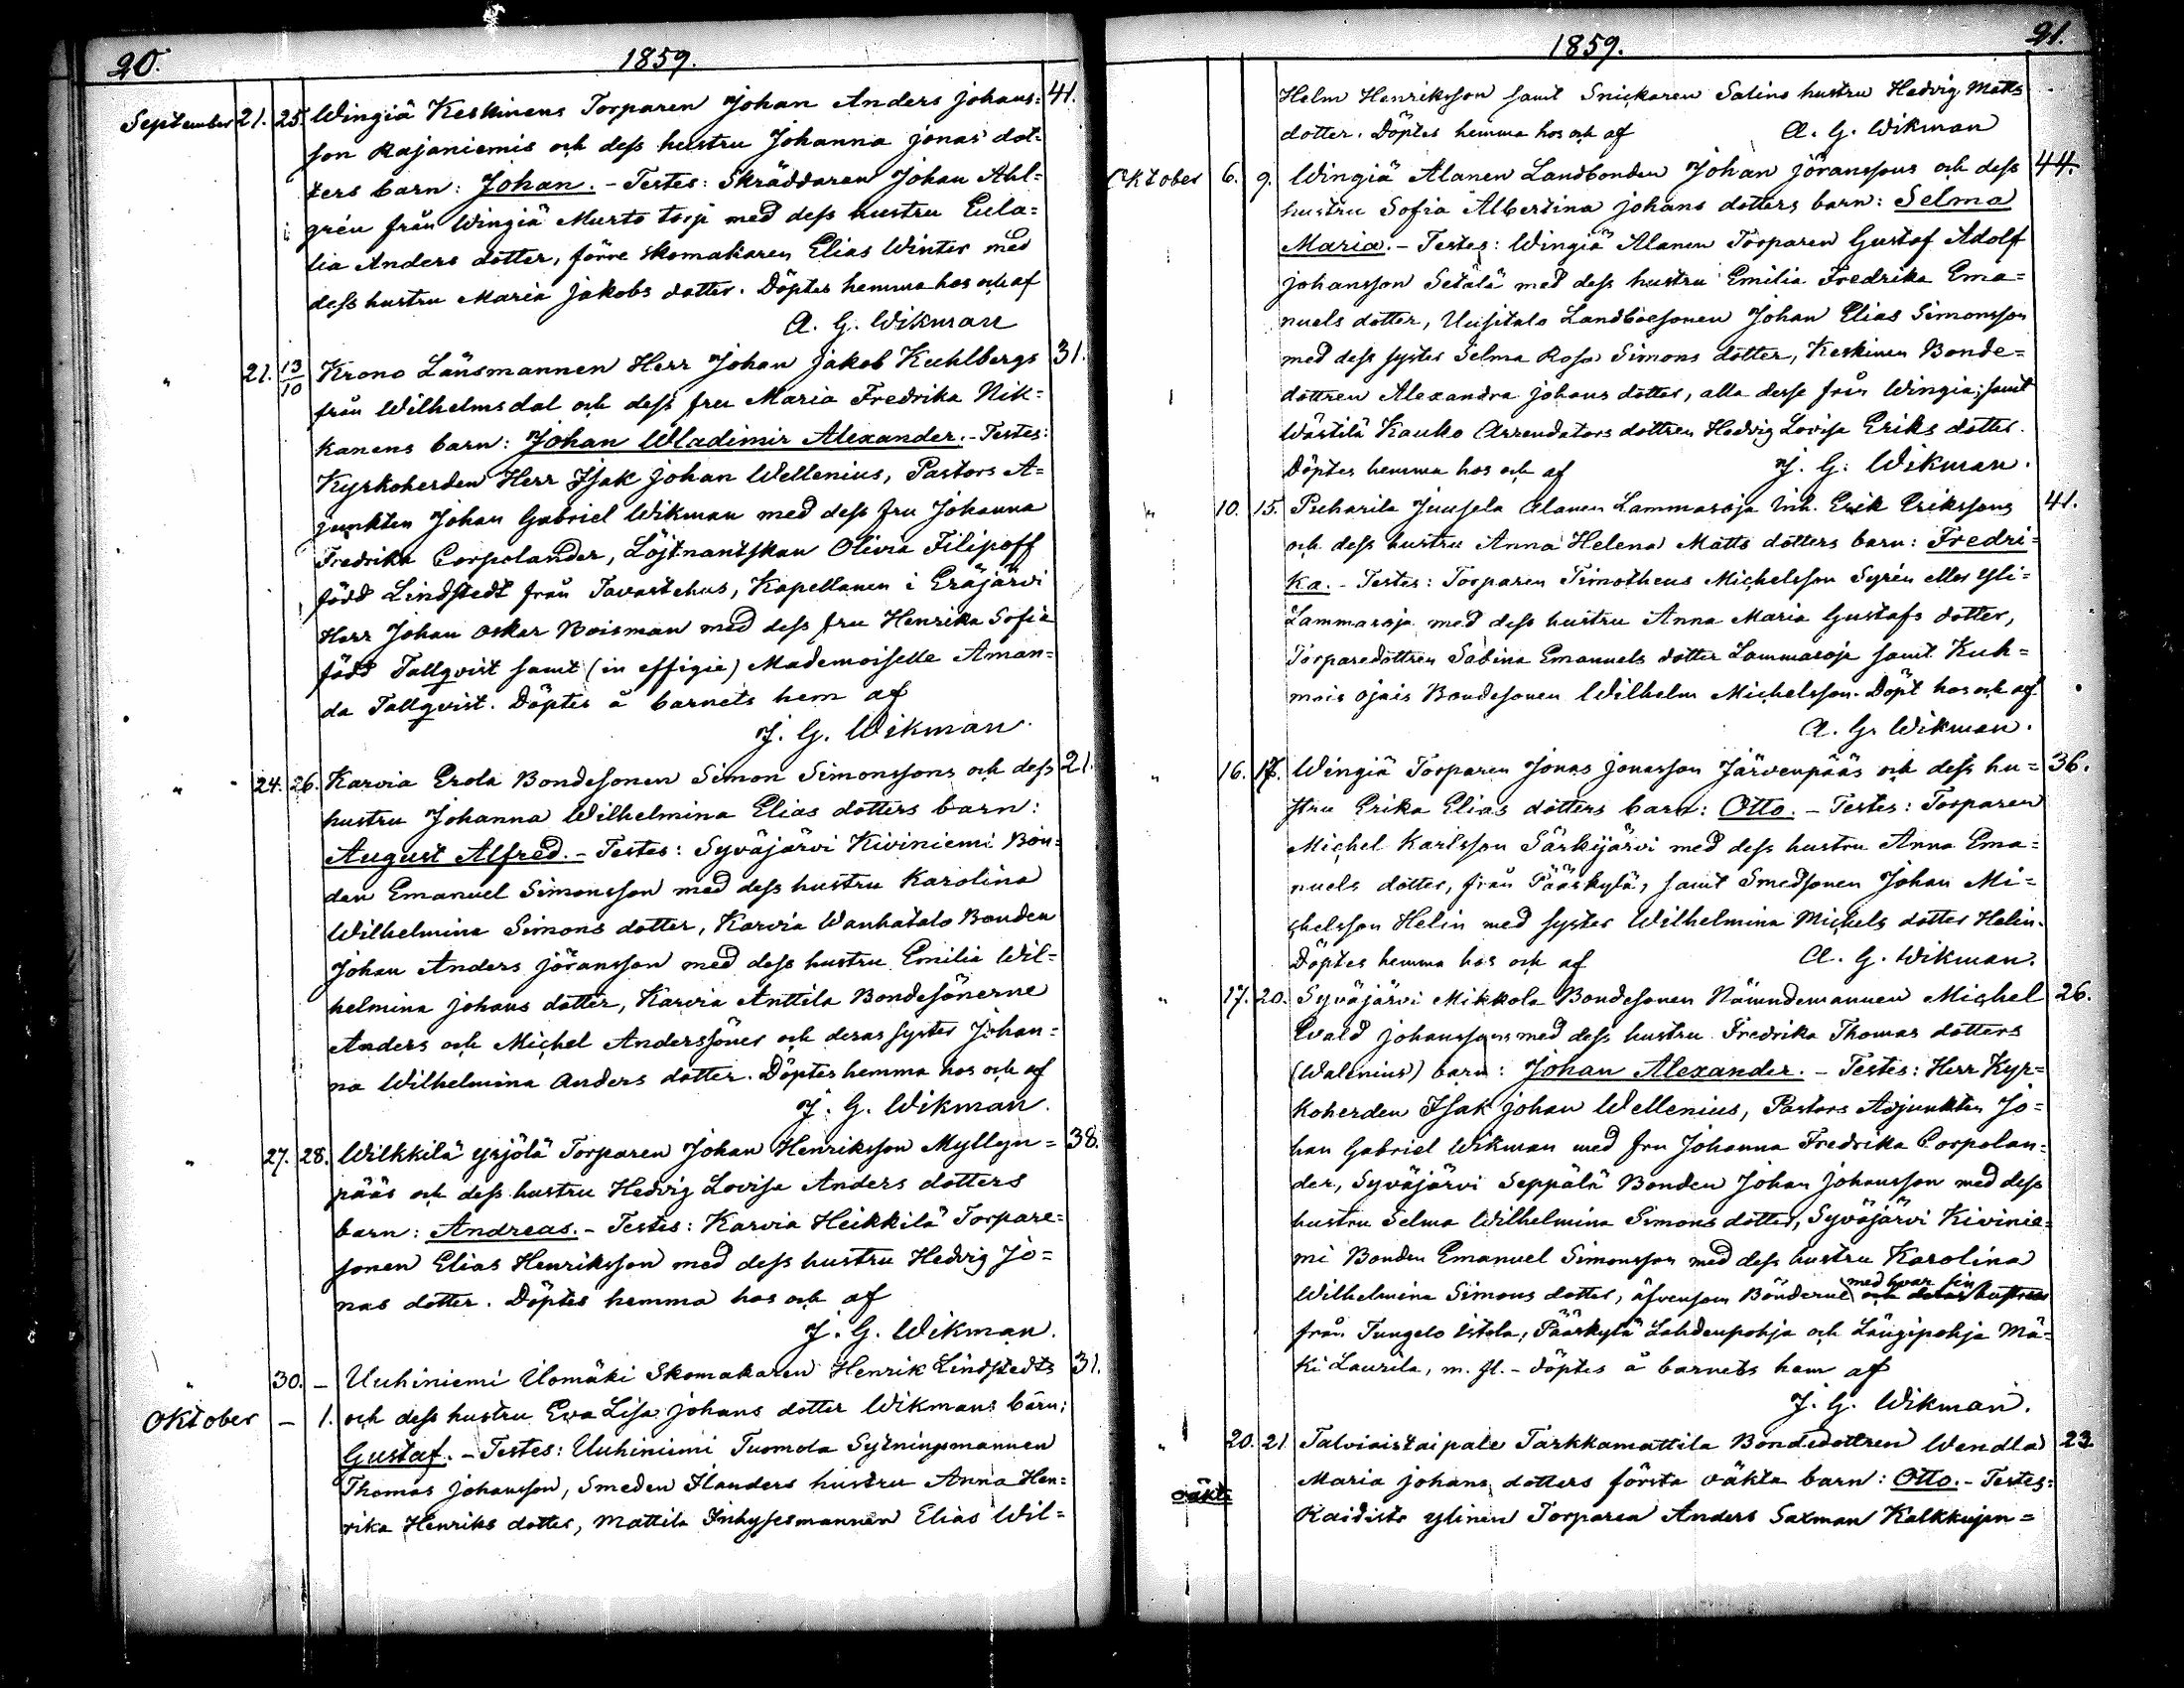 20. 1859.
September 21. 25. Wingiä Keskinens Torparen Johan Anders Johans= 41.
son Rajaniemis och dess hustru Johanna Jonas dot=
ters barn: Johan. - Testes: Skräddaren Johan Ahl=
grén från Wingiä Murto torp med dess hustru Eula=
lia Anders dotter, förre skomakaren Elias Winter med
dess hustru Maria Jakobs dotter. Döptes hemma hos och af
A. G. Wikman
" 21. 13/10 Krono Länsmannen Herr Johan Jakob Kuhlbergs 31.
från Wilhelmsdal och dess fru Maria Fredrika Nik=
kanens barn: Johan Wladimir Alexander. - Testes:
Kyrkoherden Herr Isak Johan Wellenius, Pastors A=
junkten Johan Gabriel Wikman med dess fru Johanna
Fredrika Corpolander, Löjtnantskan Olivia Filipoff
född Lindstedt från Tavastehus, Kapellanen i Eräjärvi
Herr Johan Oskar Boisman med dess fru Henrika Sofia
född Tallqvist samt (in effigie) Mademoiselle Aman=
da Tallqvist. Döptes å barnets hem af
J. G. Wikman.
" 24. 26. Karvia Erola Bondesonen Simon Simonssons och dess 21.
hustru Johanna Wilhelmina Elias dotters barn:
August Alfred. - Testes: Syväjärvi Kiviniemi Bon=
den Emanuel Simonsson med dess hustru Karolina
Wilhelmina Simons dotter, Karvia Wanhatalo Bonden
Johan Anders Jöransson med dess hustru Emilia Wil=
helmina Johans dotter, Karvia Anttila Bondesönerne
Anders och Michel Anderssöner och deras syster Johan=
na Wilhelmina Anders dotter. Döptes hemma hos och af
J. G. Wikman.
" 27. 28. Wilkkilä Yrjölä Torparen Johan Henriksson Myllyn= 38.
pääs och dess hustru Hedvig Lovisa Anders dotters
barn: Andreas. - Testes: Karvia Heikkilä Torpare=
sonen Elias Henriksson med dess hustru Hedvig Jo=
nas dotter. Döptes hemma hos och af
J. G. Wikman.
" 30. - Uuhiniemi Ulomäki Skomakaren Henrik Lindstedts 31.
Oktober - 1. och dess hustru Eva Lisa Johans dotter Wikmans barn:
Gustaf. - Testes: Uuhiniemi Tuomola Sytningsmannen
Thomas Johansson, Smeden Flanders hustru Anna Hen=
rika Henriks dotter, Mattila Inhysesmannen Elias Wil=
1859. 21.
Helm Henriksson samt Snickaren Salins hustru Hedvig Matts
dotter. Döptes hemma hos och af A. G. Wikman
Oktober 6. 9. Wingiä Alanen Landbonden Johan Jöranssons och dess 44.
hustru Sofia Albertina Johans dotters barn: Selma
Maria. - Testes: Wingiä Alanen Torparen Gustaf Adolf
Johansson Setälä med dess hustru Emilia Fredrika Ema=
nuels dotter, Uusitalo Landboesonen Johan Elias Simonsson
med dess syster Selma Rosa Simons dotter, Keskinen Bonde=
dottren Alexandra Johans dotter, alla desse från Wingiä; samt
Wärtilä Kauko Arrendators dottren Hedvig Lovisa Eriks dotter.
Döptes hemma hos och af J. G. Wikman.
" 10. 15. Puharila Juusela Alanen Lammasoja Inh. Erik Erikssons 41.
och dess hustru Anna Helena Matts dotters barn: Fredri=
ka. - Testes: Torparen Timotheus Michelsson Syrén eller Yli=
Lammasoja med dess hustru Anna Maria Gustafs dotter,
Torparedottren Sabina Emanuels dotter Lammasoja samt Kuh=
mois Ojais Bondesonen Wilhelm Michelsson. Döpt hos och af
A. G. Wikman.
" 16. 17. Wingiä Torparen Jonas Jonasson Järvenpääs och dess hu= 36.
stru Erika Elias dotters barn: Otto. - Testes: Torparen
Michel Karlsson Särkijärvi med dess hustru Anna Ema=
nuels dotter, från Pääskylä, samt Smedsonen Johan Mi=
chelsson Helin med syster Wilhelmina Michels dotter Helin.
Döptes hemma hos och af A. G. Wikman.
" 17. 20. Syväjärvi Mikkola Bondesonen Nämndemannen Michel 26.
Evald Johanssons med dess hustru Fredrika Thomas dotters
(Walenius) barn: Johan Alexander. - Testes: Herr Kyr=
koherden Isak Johan Wellenius, Pastors Adjunkten Jo=
han Gabriel Wikman med fru Johanna Fredrika Corpolan=
der, Syväjärvi Seppälä Bonden Johan Johansson med dess
hustru Selma Wilhelmina Simons dotter, Syväjärvi Kivinie=
mi Bonden Emanuel Simonsson med dess hustru Karolina
Wilhelmina Simons dotter, äfvensom Bönderne med hvar sin och deras hustrur
från Tungelo Iitola, Pääskylä Lahdenpohja och Längipohja Mä=
ki Laurila, m. fl. - döptes å barnets hem af
J. G. Wikman.
" 20. 21. Talviaistaipale Tarkkamattila Bondedottren Wendla 23.
Maria Johans dotters första oäkta barn: Otto. - Testes:
oäkta Kaidisto Ylinen Torparen Anders Saxman Kalkkujen=